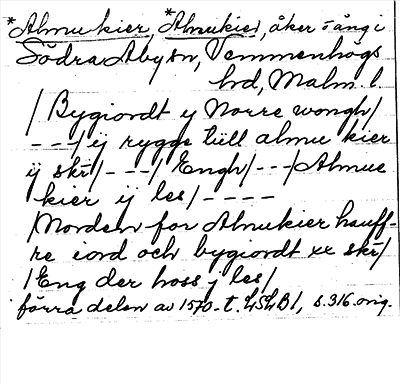 *Almu kier, *Almukier, åker o äng i
Södra Åby sn, Vemmenhögs
hd, Malm. l.
/Bygiordt y Norre wongh/
---/ij rygge till almu kier
ij skr/---/Engh/---/Almue
kier ij les/----
/Norden for Almukier hauff-
re iord och bygiordt xx skr/
/Eng der hoss j les/
förra delen av 1570-t. LSLB 1, s. 316. orig.